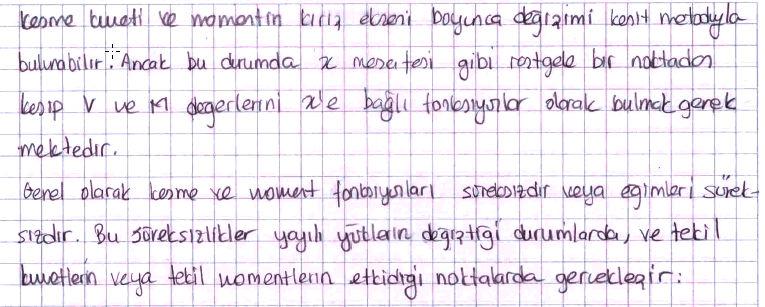 kesme kuvveti ve momentin kiriş ekseni boyunca değişimi kesit metoduyla
bulunabilir. Ancak bu durumda x mesafesi gibi rastgele bir noktadan
kesip V ve M değerlerini x'e bağlı fonksiyonlar olarak bulmak gerek
mektedir.
Genel olarak kesme ve moment fonksiyonları süreksizdir veya eğimleri sürek-
sizdir. Bu süreksizlikler yayılı yüklerin değiştiği durumlarda, ve tekil
kuvvetlerin veya tekil momentlerin etkidiği noktalarda gerçekleşir: